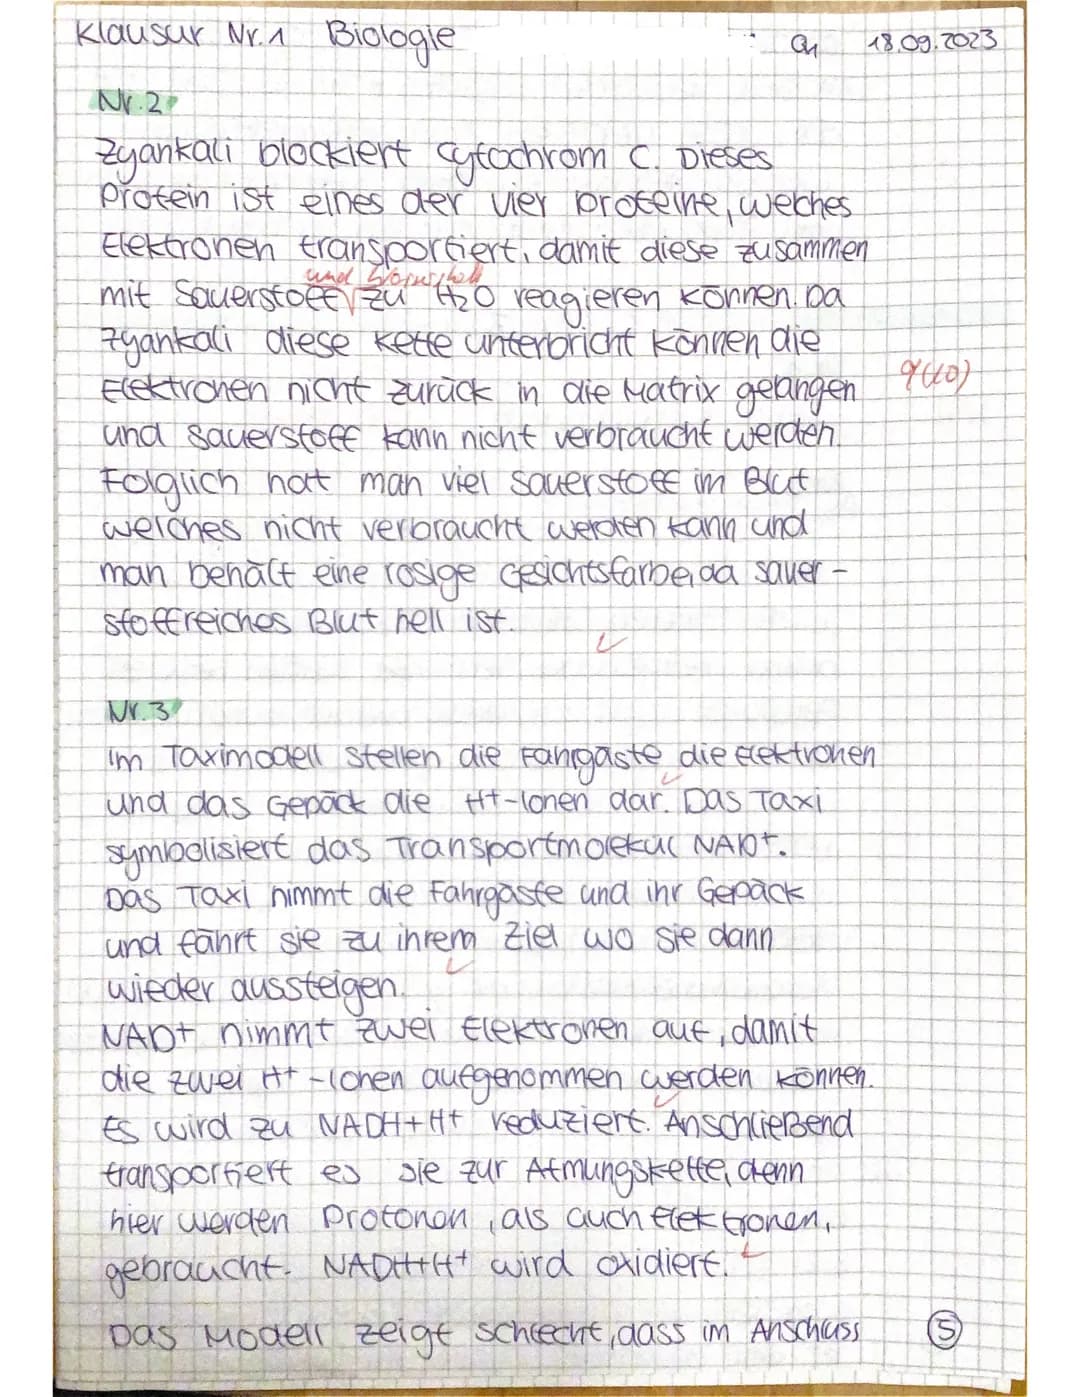 Klausur Nr. 1 Biologie Q1 18.09.2023
Nr. 2
Zyankali blockiert Cytochrom C. Dieses
Protein ist eines der vier Proteine, welches
Elektronen transportiert, damit diese zusammen
und Wasserstoff
mit Sauerstoff √ zu H2O reagieren können. Da
Zyankali diese Kette unterbricht können die
Elektronen nicht zurück in die Matrix gelangen 9(10)
und Sauerstoff kann nicht verbraucht werden.
Folglich hat man viel Sauerstoff im Blut
welches nicht verbraucht werden kann und
man behält eine rosige Gesichtsfarbe, da sauer-
stoffreiches Blut hell ist.
Nr. 3
Im Taximodell stellen die Fahrgäste die Elektronen
und das Gepäck die H+-Ionen dar. Das Taxi
symbolisiert das Transportmolekül NAD+.
Das Taxi nimmt die Fahrgäste und ihr Gepäck
und fährt sie zu ihrem Ziel wo sie dann
wieder aussteigen.
NAD+ nimmt zwei Elektronen auf, damit
die zwei H+-Ionen aufgenommen werden können.
Es wird zu NADH+H+ reduziert. Anschließend
transportiert es sie zur Atmungskette, denn
hier werden Protonen, als auch Elektronen,
gebraucht. NADH+H+ wird oxidiert.
Das Modell zeigt schlecht, dass im Anschluss 5